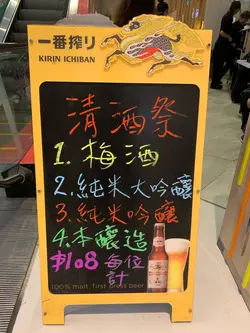 一番搾り
KIRIN ICHIBAN
清酒祭
1. 梅酒
2. 純米大吟釀
3. 純米吟釀
4. 本釀造
$108 每位計
100% malt first press beer